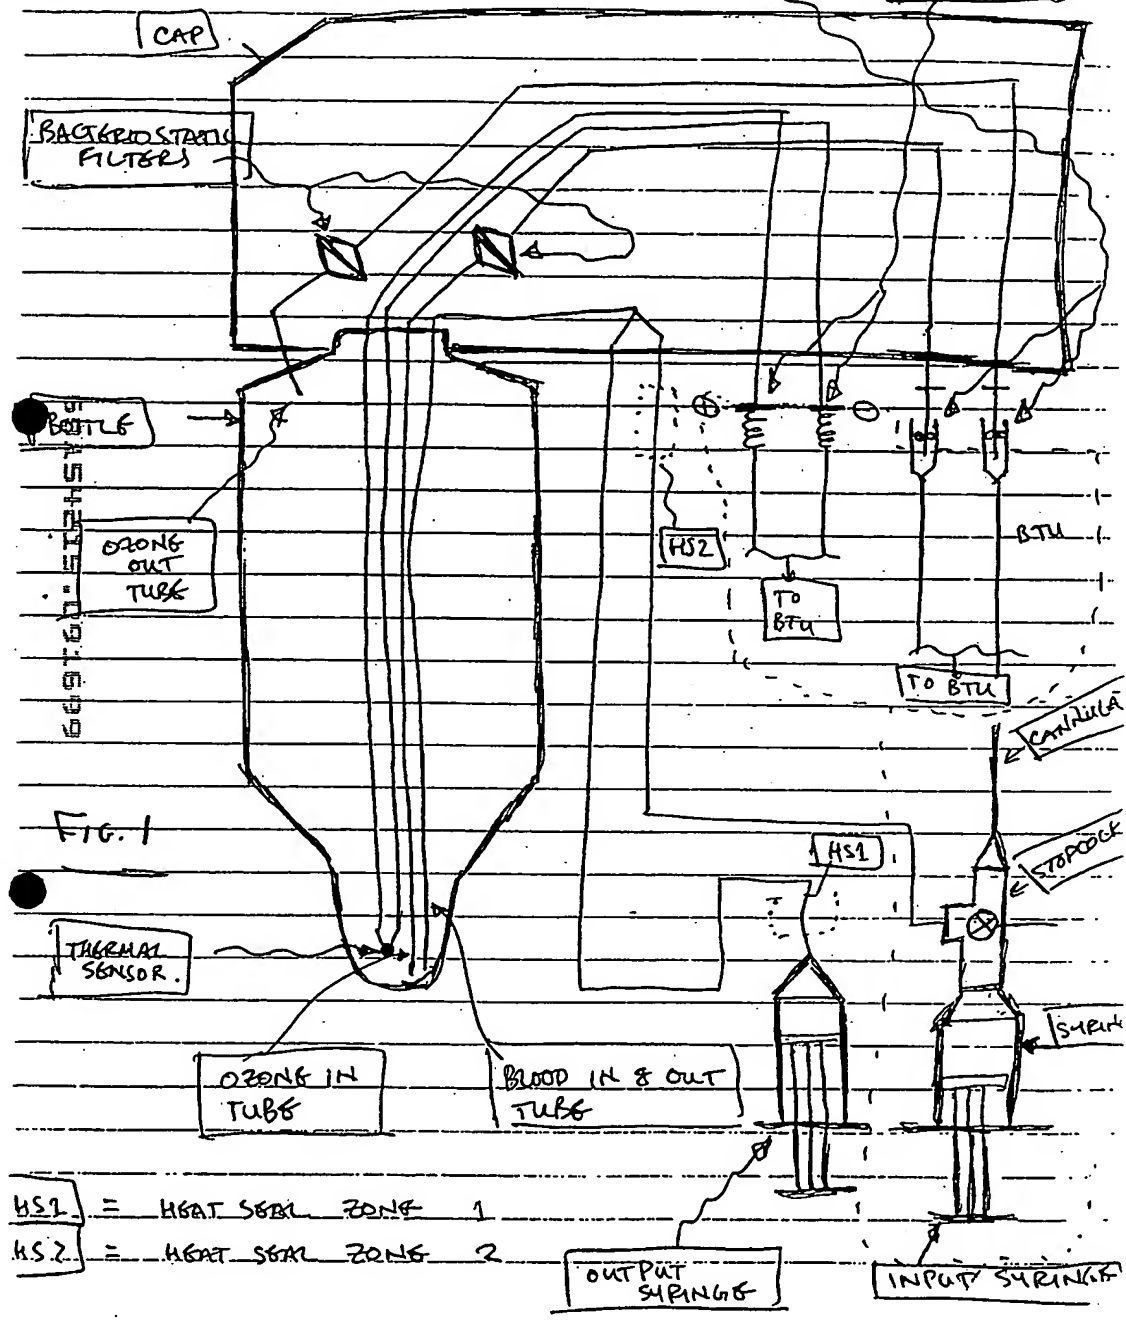 CAP
BACTERIOSTATIC
FILTERS
BOTTLE
OZONE
OUT
TUBE
HS2
TO
BTU
BTU
TO BTU
CANNULA
STOPCOCK
FIG. 1
HS1
THERMAL
SENSOR.
OZONE IN
TUBE
BLOOD IN & OUT
TUBE
SYRIN
HS1 = HEAT SEAL ZONE 1
HS2 = HEAT SEAL ZONE 2
OUTPUT
SYRINGE
INPUT SYRINGE